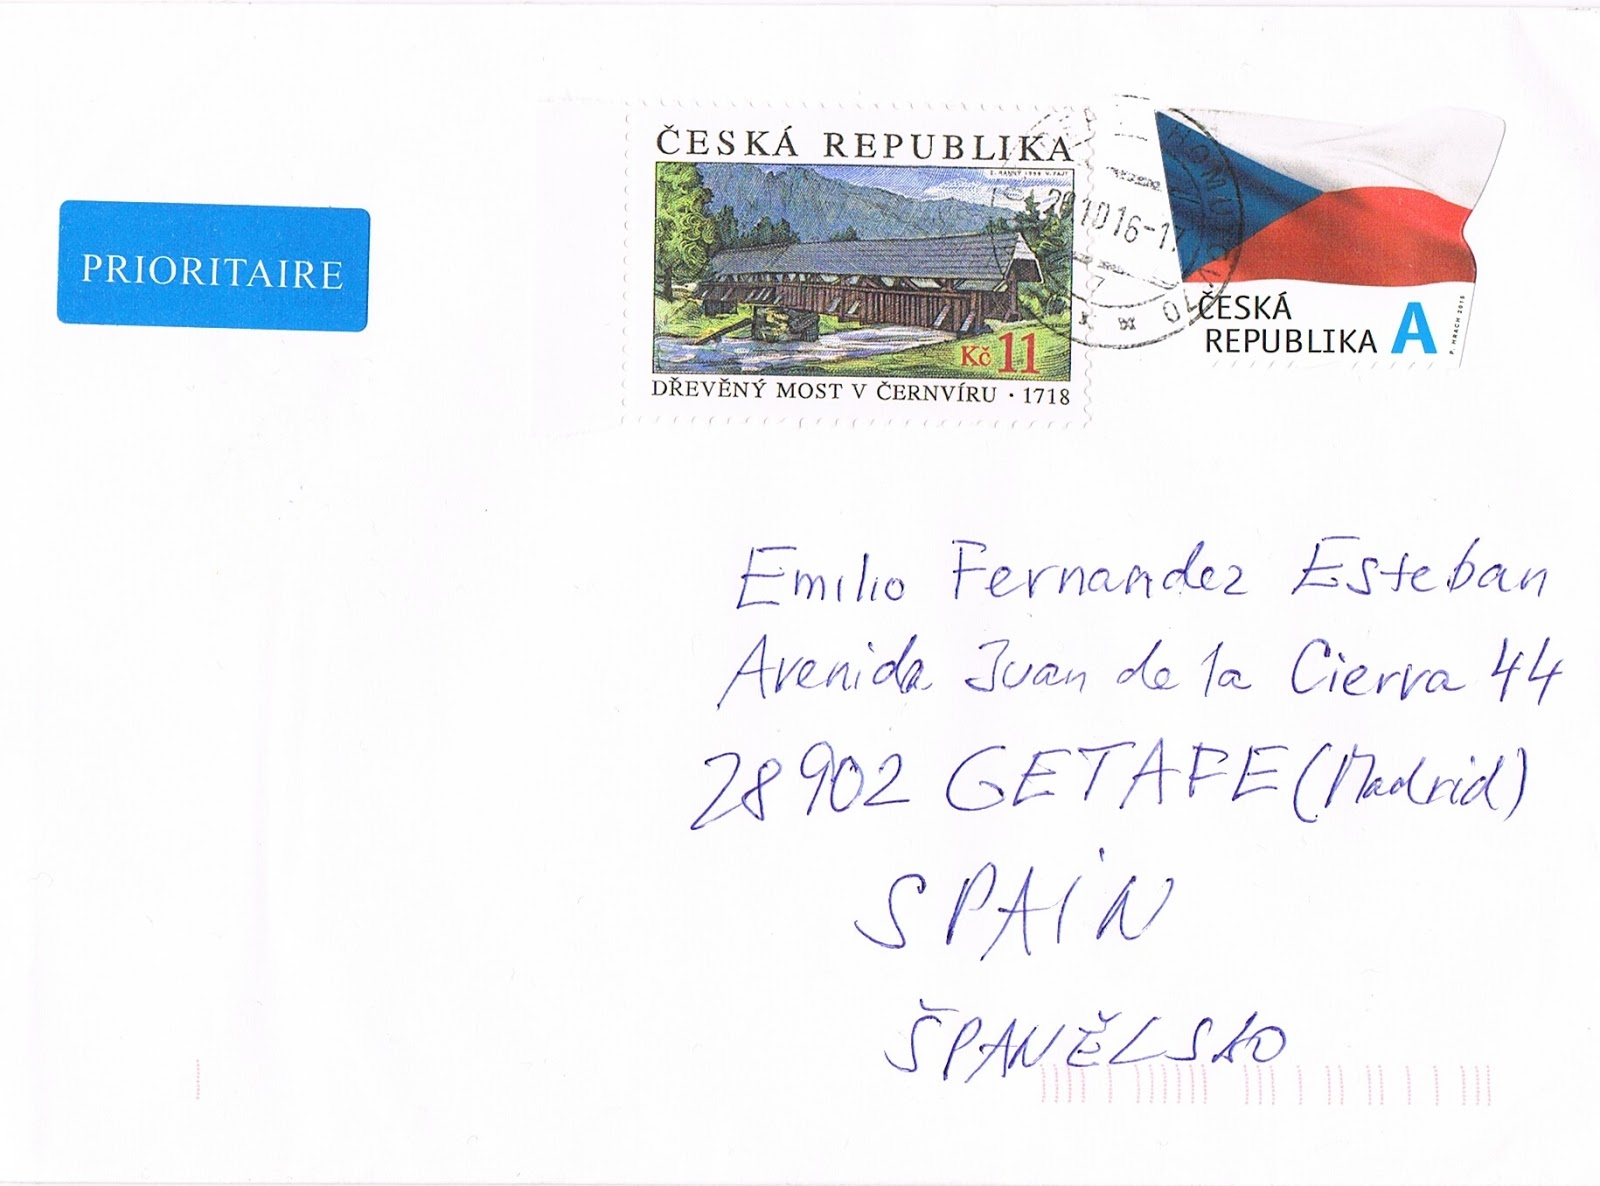 PRIORITAIRE
ČESKÁ REPUBLIKA
Kč 11
DŘEVĚNÝ MOST V ČERNVÍRU · 1718
10 16-17
ČESKÁ
REPUBLIKA A
P. HRACH 2015
Emilio Fernandez Esteban
Avenida Juan de la Cierva 44
28902 GETAFE (Madrid)
SPAIN
ŠPANĚLSKO